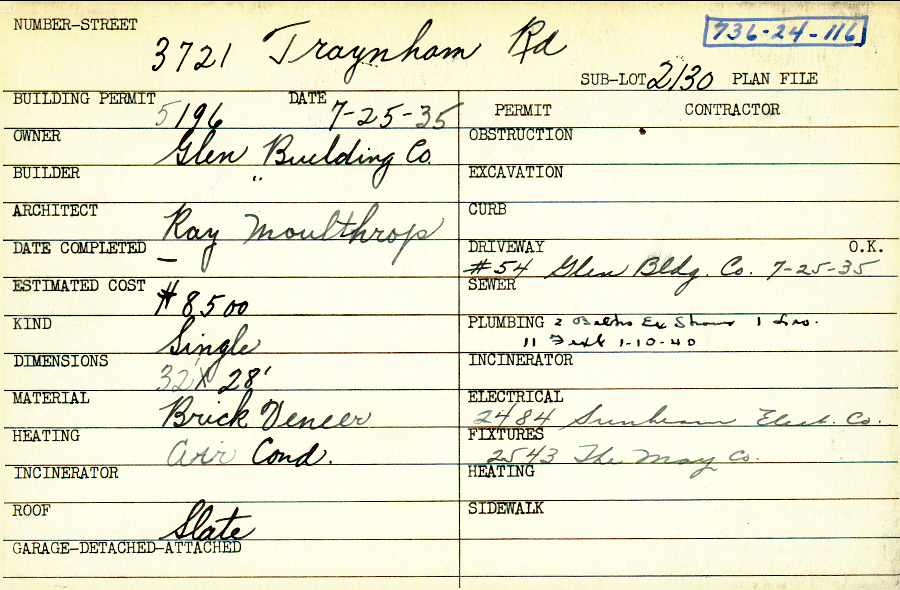 NUMBER-STREET 3721 Traynham Rd 736-24-116
SUB-LOT 2130 PLAN FILE
BUILDING PERMIT 5196 DATE 7-25-35
OWNER Glen Building Co.
BUILDER "
ARCHITECT Ray Moulthrop
DATE COMPLETED —
ESTIMATED COST # 8500
KIND Single
DIMENSIONS 32' X 28'
MATERIAL Brick Veneer
HEATING Air Cond.
INCINERATOR
ROOF Slate
GARAGE-DETACHED-ATTACHED
PERMIT CONTRACTOR
OBSTRUCTION
EXCAVATION
CURB
DRIVEWAY O.K.
#54 Glen Bldg. Co. 7-25-35
SEWER
PLUMBING 2 Baths Ex Shower 1
11 1-10-40
INCINERATOR
ELECTRICAL
2484 Sunbeam Elect. Co.
FIXTURES
2543 The May Co.
HEATING
SIDEWALK